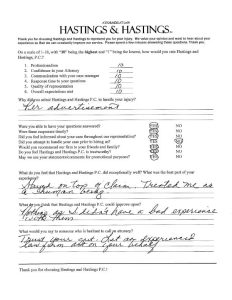 HASTINGS & HASTINGS
Thank you for choosing Hastings and Hastings to represent you for your injury. We value your opinion and want to hear about your
experience so that we can constantly improve our service. Please spend a few minutes answering these questions. Thank you.
On a scale of 1-10, with "10" being the highest and "1" being the lowest, how would you rate Hastings and
Hastings, P.C.?
1. Professionalism 10
2. Confidence in your Attorney 10
3. Communication with your case manager 10
4. Response time to your questions 10
5. Quality of representation 10
6. Overall expectations met 10
Why did you select Hastings and Hastings P.C. to handle your injury?
Per advertisement
Were you able to have your questions answered? YES NO
Were these corporate timely? YES NO
Did you feel informed about your case throughout our representation? YES NO
Did you attempt to handle your case prior to hiring us? YES NO
Would you recommend our firm to your friends and family? YES NO
Did you find Hastings and Hastings P.C. is trustworthy? YES NO
May we use your statements/comments for promotional purposes? YES NO
What do you feel that Hastings and Hastings P.C. did exceptionally well? What was the best part of your
experience?
Stayed on top of claim. Treated me as
a human being
What do you think that Hastings and Hastings P.C. could improve upon?
Nothing as I didn't have a bad experience
with them
What would you say to someone who is hesitant to call an attorney?
Trust your gut. Let an experienced
law firm act on your behalf
Thank you for choosing Hastings and Hastings P.C.!